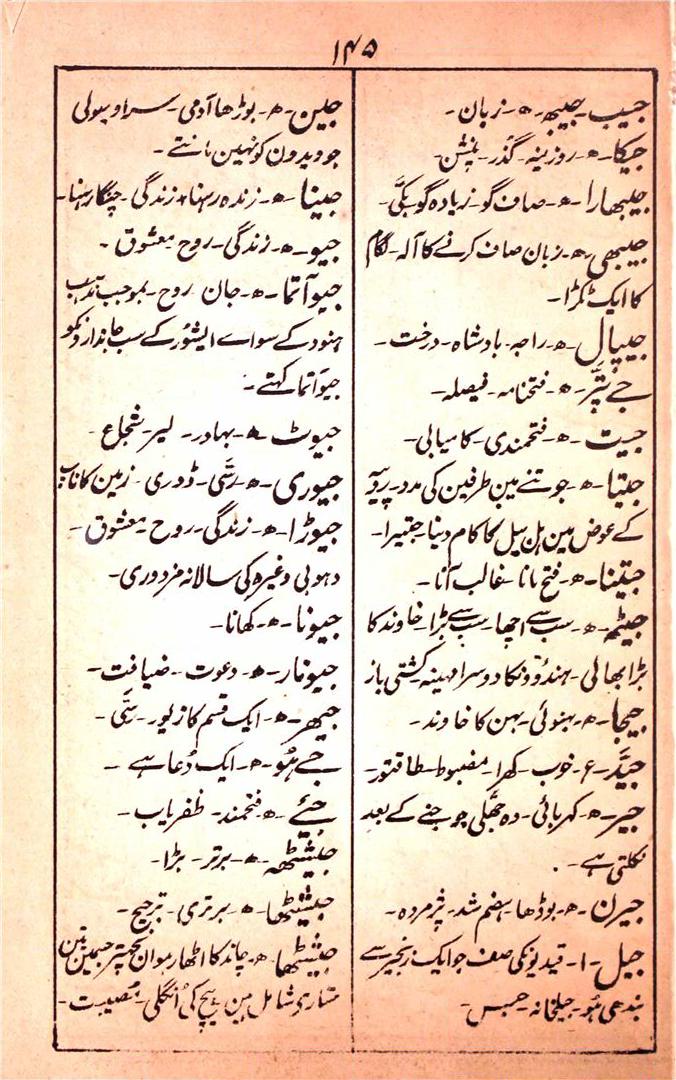 ۱۴۵
جیب۔ جیبھ۔ ھ۔ زبان۔
جیکا۔ ھ۔ روزینہ۔ گذر۔ پنشن۔
جیبھارا۔ ھ۔ صاف گو۔ زیادہ گو۔ بکّی۔
جیبھی۔ ھ۔ زبان صاف کرنے کا آلہ۔ لگام
کا ایک ٹکڑا۔
جیپال۔ ھ۔ راجہ۔ بادشاہ۔ درخت۔
جے پتّر۔ ھ۔ فتحنامہ۔ فیصلہ۔
جیت۔ ھ۔ فتحمندی۔ کامیابی۔
جیتا۔ ھ۔ جوتنے مین طرفین کی مدد۔ روپیہ
کے عوض مین ہل بیل کا کام دینا۔ جتیرا۔
جیتنا۔ ھ۔ فتح پانا۔ غالب آنا۔
جیٹھ۔ ھ۔ سب سے اچھا۔ سب سے بڑا۔ خاوند کا
بڑا بھائی۔ ہندوؤنکا دوسرا مہینہ۔ کشتی باز
جیجا۔ ھ۔ بہنوئی۔ بہن کا خاوند۔
جیّد۔ ع۔ خوب۔ کھرا۔ مضبوط۔ طاقتور۔
جیر۔ ھ۔ کہربائی۔ وہ جھلّی جو جننے کے بعد
نکلتی ہے۔
جیرن۔ ھ۔ بوڈھا۔ ہضم شد۔ پژمردہ۔
جیل۔ ا۔ قیدیونکی صف جو ایک زنجیر سے
بندھی ہو۔ جیلخانہ۔ حبس۔
جین۔ ھ۔ بوڑھا آدمی۔ سراوہولی
جو ویدون کو نہین مانتے۔
جینا۔ ھ۔ زندہ رہنا۔ زندگی۔ چنگا رہنا۔
جیو۔ ھ۔ زندگی۔ روح۔ معشوق۔
جیوآتما۔ ھ۔ جان۔ روح۔ بموجب مذہب
ہنود کے سواے ایشور کے سب جاندارونکو
جیوآتما کہتے۔
جیوٹ۔ ھ۔ بہادر۔ شجاع۔
جیوری۔ ھ۔ رسّی۔ ڈوری۔ زمین کا ناپ
جیوڑا۔ ھ۔ زندگی۔ روح۔ معشوق۔
دہوبی وغیرہ کی سالانہ مزدوری۔
جیونا۔ ھ۔ کھانا۔
جیونار۔ ھ۔ دعوت۔ ضیافت۔
جیھر۔ ھ۔ ایک قسم کا زیور۔ رسّی۔
جے ہو۔ ھ۔ ایک دُعا ہے۔
جیئے۔ ھ۔ فتحمند۔ ظفریاب۔
جیشٹھہ۔ ھ۔ برتر۔ بڑا۔
جیشٹھا۔ ھ۔ برتری۔ ترجیح۔
جیشٹھا۔ ھ۔ چاند کا اٹھارہوان نچھتر جسمین تین
ستارے شامل ہین۔ بیچ کی اُنگلی۔ مصیبت۔